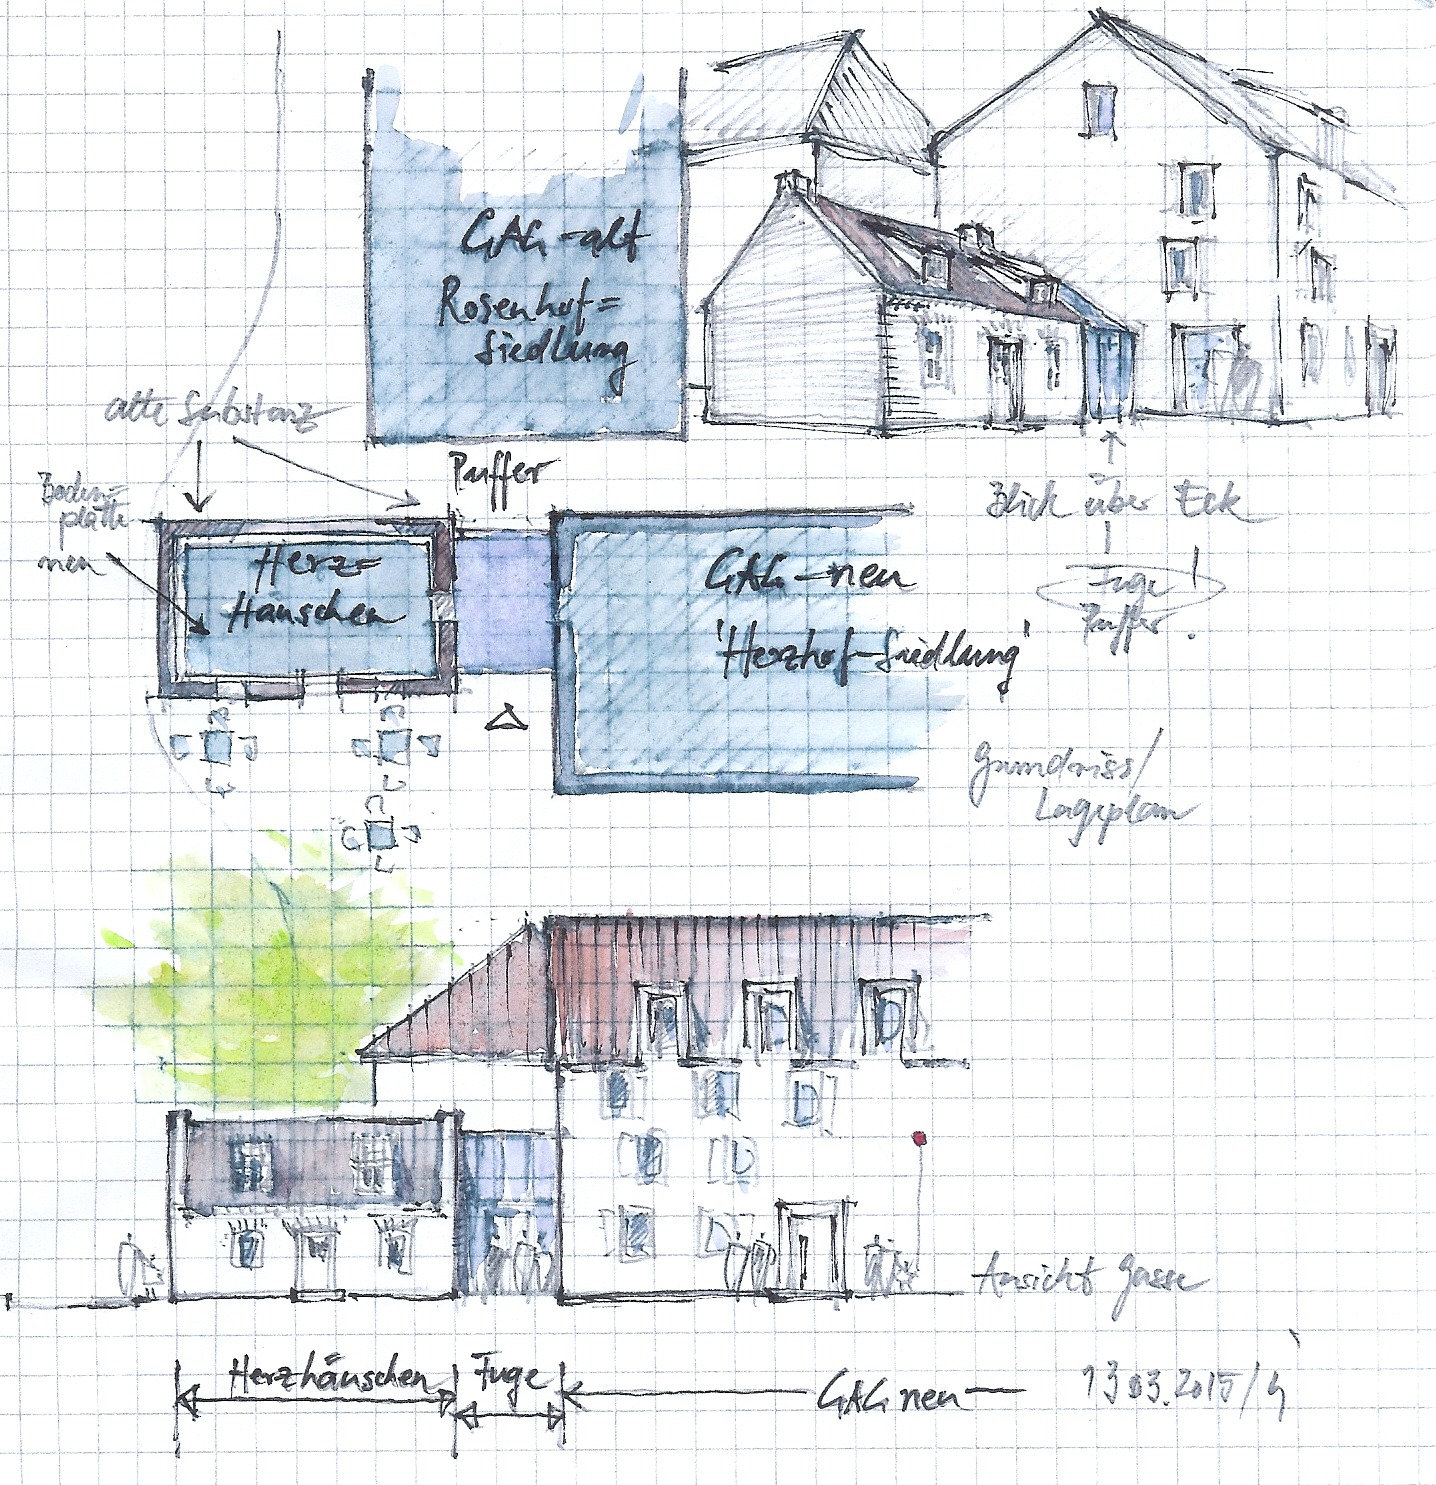 GAG-alt
Rosenhof=
Siedlung
alte Substanz
Puffer
Boden=
platte
neu
Herz=
Häuschen
GAG-neu
'Herzhof-Siedlung'
Blick über Eck
Fuge!
Puffer.
Grundriss/
Lageplan
Ansicht Gasse
Herzhäuschen
Fuge
GAG neu
13.03.2015/